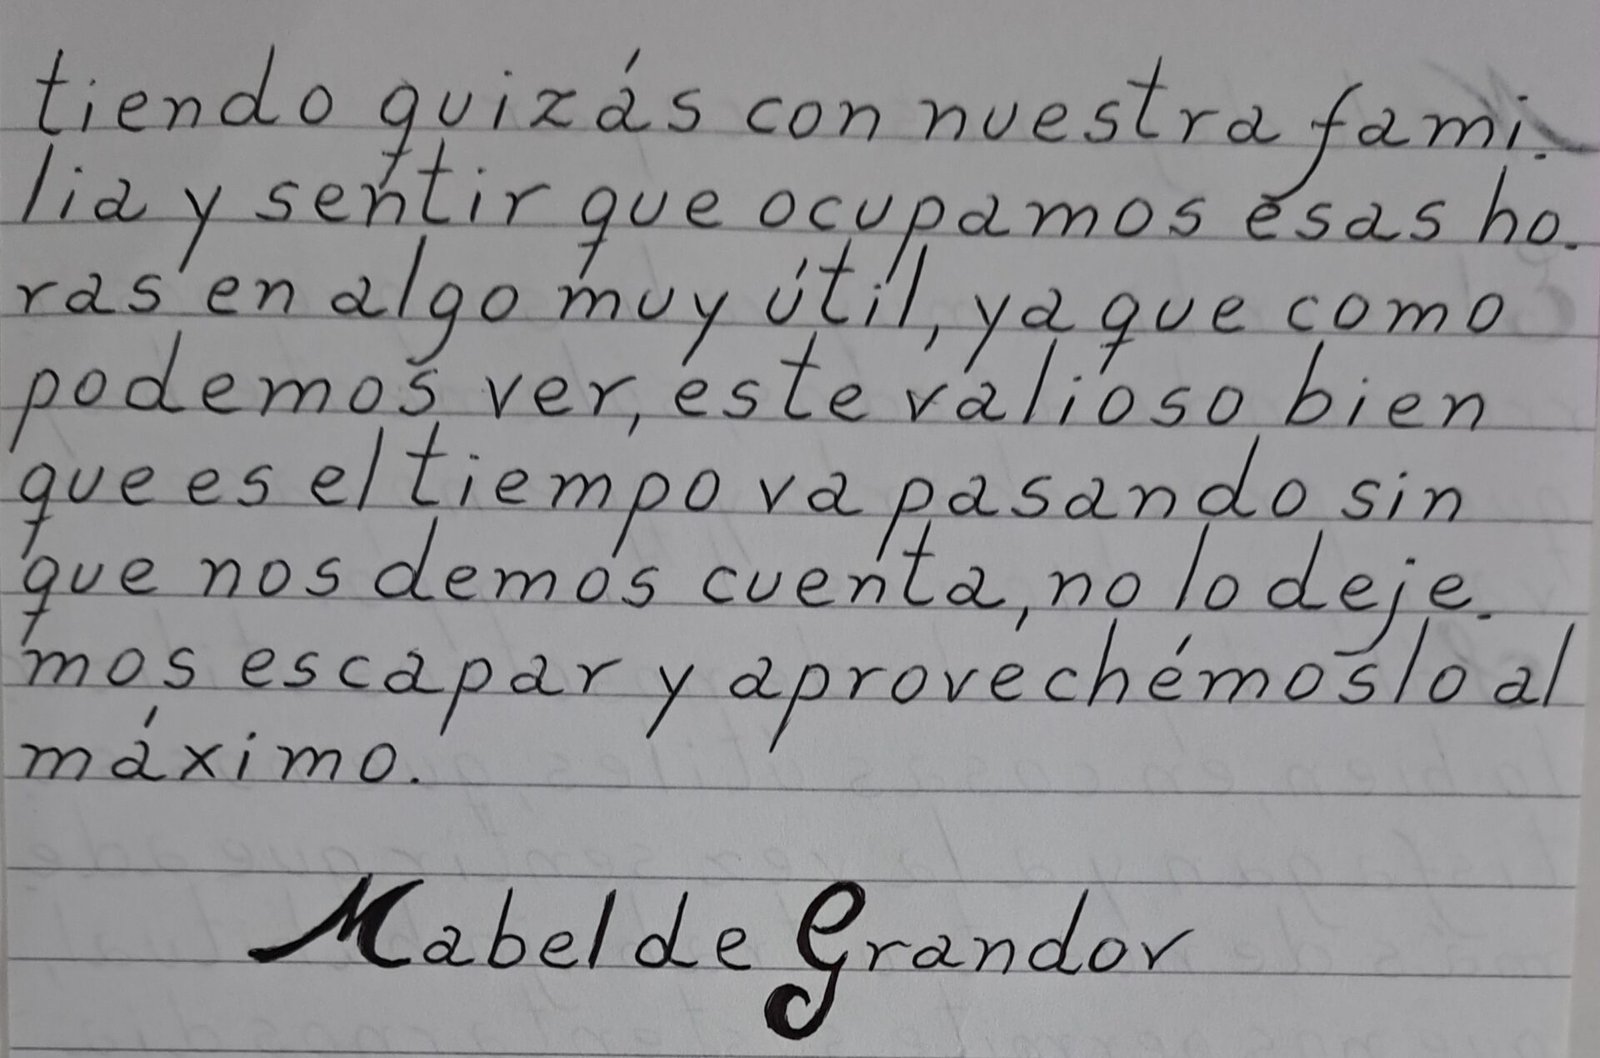 tiendo quizás con nuestra fami-
lia y sentir que ocupamos esas ho-
ras en algo muy útil, ya que como
podemos ver, este valioso bien
que es el tiempo va pasando sin
que nos demos cuenta, no lo deje-
mos escapar y aprovechémoslo al
máximo.
Mabel de Grandor